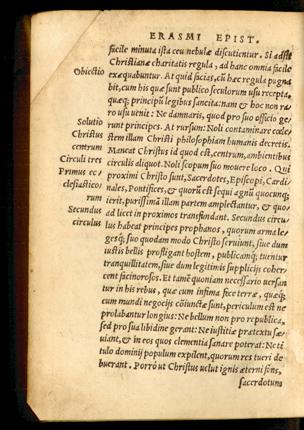 ERASMI EPIST.
facile minuta ista ceu nebulæ discutientur. Si adsit
Christianæ charitatis regula, ad hanc omnia facile
Obiectio
exæquabuntur. At quid facies, cū hæc regula pugna
bit, cum his quæ sunt publico seculorum usu recepta,
quæq; principū legibus sancita: nam & hoc non ra/
ro usu uenit: Ne damnaris, quod pro suo officio ge/
Solutio
runt principes. At rursum: Noli contaminare cœle/
Christus
stem illam Christi philosophiam humanis decretis.
centrum
Maneat Christus id quod est, centrum, ambientibus
Circuli tres
circulis aliquot. Noli scopum suo mouere loco. Qui
Primus ec/
proximi Christo sunt, Sacerdotes, Episcopi, Cardi/
clesiasticorum
nales, Pontifices, & quorū est sequi agnū quocunq;
ierit, purissimā illam partem amplectantur, & quo
Secundus
ad licet in proximos transfundant. Secundus circu/
circulus
lus habeat principes prophanos, quorum arma le/
gesq; suo quodam modo Christo seruiunt, siue dum
iustis bellis profligant hostem, publicamq; tuentur
tranquillitatem, siue dum legitimis supplicijs coher/
cent facinorosos. Et tamē quoniam necessario uersan
tur in his rebus, quæ cum infima fece terræ, quæq;
cum mundi negocijs cōiunctæ sunt, periculum est ne
prolabantur longius: Ne bellum non pro republica,
sed pro sua libidine gerant: Ne iustitiæ prætextu sæ/
uiant, & in eos quos clementia sanare poterat: Ne ti/
tulo dominij populum expilent, quorum res tueri de
buerant. Porrò ut Christus uelut ignis æterni fons,
sacerdotum